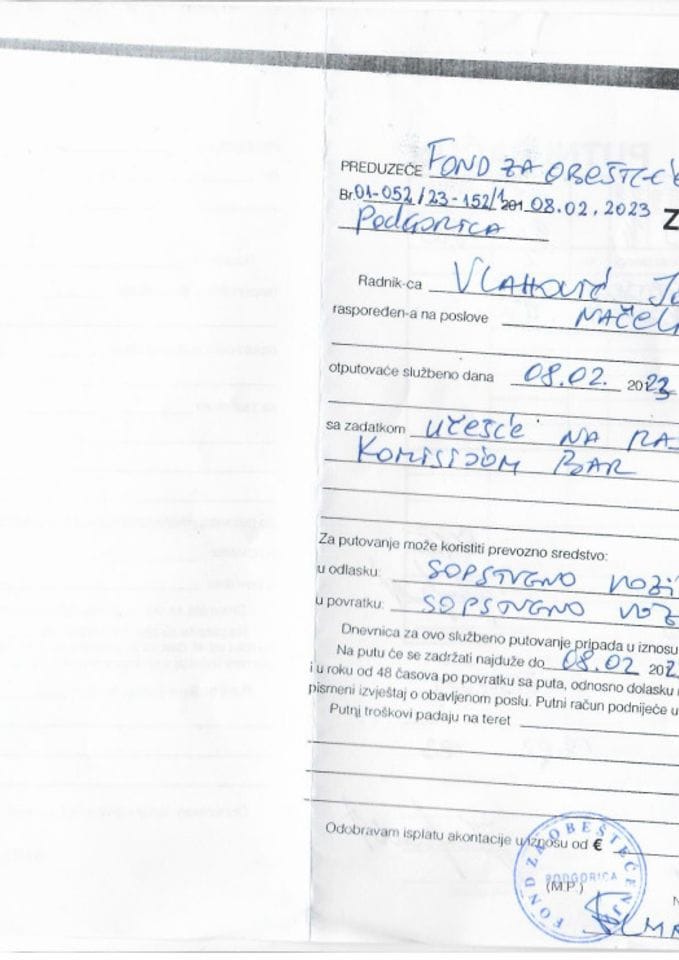 PREDUZEĆE FOND ZA OBEŠTEĆE
Br. 01-052/23-152/1 201 08.02.2023
Z
Podgorica
Radnik-ca VLAHOVIĆ
raspoređen-a na poslove NAČEL
otputovaće službeno dana 08.02. 2023
sa zadatkom UČEŠĆE NA RA
KOMISIJOM BAR
Za putovanje može koristiti prevozno sredstvo:
u odlasku: SOPSTVENO VOZI
u povratku: SOPSTVENO VOZ
Dnevnica za ovo službeno putovanje pripada u iznosu
Na putu će se zadržati najduže do 08.02 202
i u roku od 48 časova po povratku sa puta, odnosno dolasku
pismeni izvještaj o obavljenom poslu. Putni račun podnijeće u
Putni troškovi padaju na teret
Odobravam isplatu akontacije u iznosu od €
FOND ZA OBEŠTEĆENJA
PODGORICA
(M.P.)